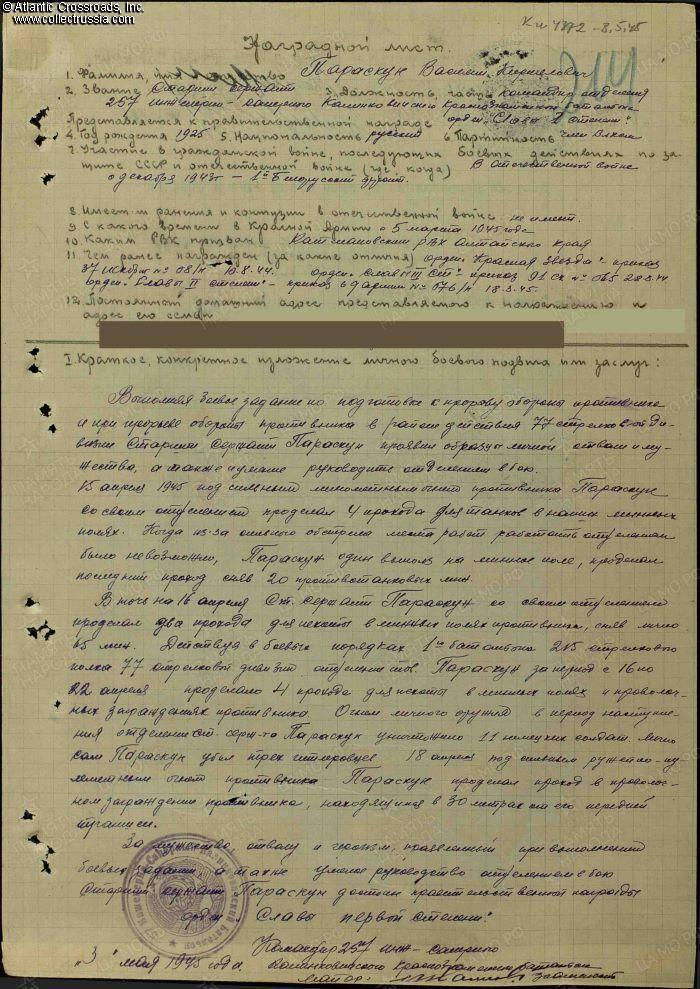 © Atlantic Crossroads, Inc.
www.collectrussia.com
8.5.45
Наградной лист.
1. Фамилия, имя отчество Параскун Василий
2. Звание Старший сержант 3. Должность, часть командир отделения
257 инженерно-саперного Калинковичского Краснознаменного батальона
Представляется к правительственной награде орден „Славы I степени"
4. Год рождения 1925 5. Национальность русский 6. Партийность член ВЛКСМ
7. Участие в гражданской войне, последующих боевых действиях по за-
щите СССР и отечественной войне (где, когда) В отечественной войне
с декабря 1943г – 1й Белорусский фронт.
8. Имеет ли ранения и контузии в отечественной войне не имеет.
9. С какого времени в Красной Армии с 5 марта 1943 года
10. Каким РВК призван РВК Алтайского края
11. Чем ранее награжден (за какие отличия) орден „Красная Звезда" - приказ
орден „Славы III ст" приказ 91 ск № 065 28.9.44
орден „Славы II степени" - приказ 69 армии № 076/н 18.3.45.
12. Постоянный домашний адрес представляемого к награждению и
адрес его семьи
I. Краткое, конкретное изложение личного боевого подвига или заслуг:
Выполняя боевое задание по подготовке к прорыву обороны противника
и при прорыве обороны противника в районе действия 77 стрелковой ди-
визии Старший Сержант Параскун проявил образцы личной отваги и му-
жества, а также умение руководить отделением в бою.
15 апреля 1945 под сильным минометным огнем противника Параскун
со своим отделением проделал 4 прохода для танков в наших минных
полях. Когда из-за сильного обстрела места работ работать отделением
было невозможно, Параскун один выполз на минное поле, проделал
последний проход сняв 20 противотанковых мин.
В ночь на 16 апреля Ст. Сержант Параскун со своим отделением
проделал два прохода для пехоты в минных полях противника, сняв лично
15 мин. Действуя в боевых порядках 1го батальона 215 стрелкового
полка 77 стрелковой дивизии отделение ст. Параскун за период с 16 по
22 апреля проделало 4 прохода для пехоты в минных полях и проволоч-
ных заграждениях противника. Огнем личного оружия в период наступле-
ния отделение ст. серж-та Параскун уничтожило 11 немецких солдат. Лично
сам Параскун убил трех гитлеровцев. 18 апреля под сильным ружейно-пу-
леметным огнем противника Параскун проделал проход в проволоч-
ном заграждении противника, находящимся в 30 метрах от его передней
траншеи.
За мужество, отвагу и героизм, проявленный при выполнении
боевых заданий а также умелое руководство отделением в бою
Старший сержант Параскун достоин правительственной награды
орден „Славы первой степени"
"3" мая 1945 года. Командир 257 инж-саперного
Калинковичского Краснознаменного батальона
майор: